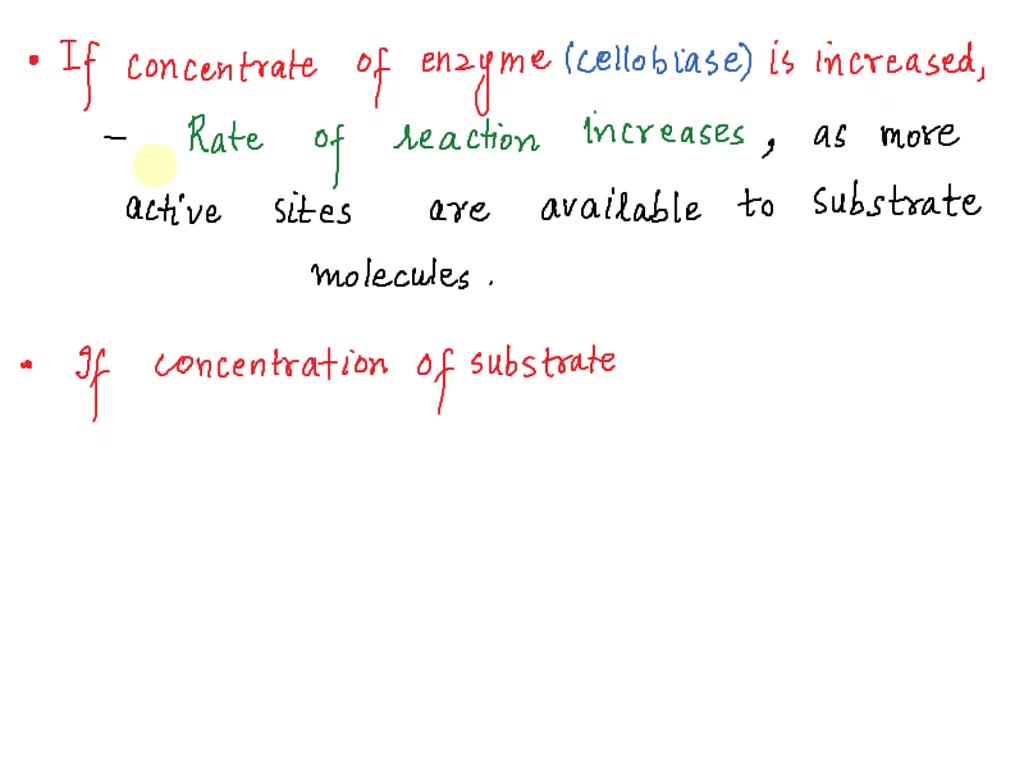 • If concentrate of enzyme (cellobiase) is increased,
– Rate of reaction increases, as more
active sites are available to substrate
molecules.
• If concentration of substrate